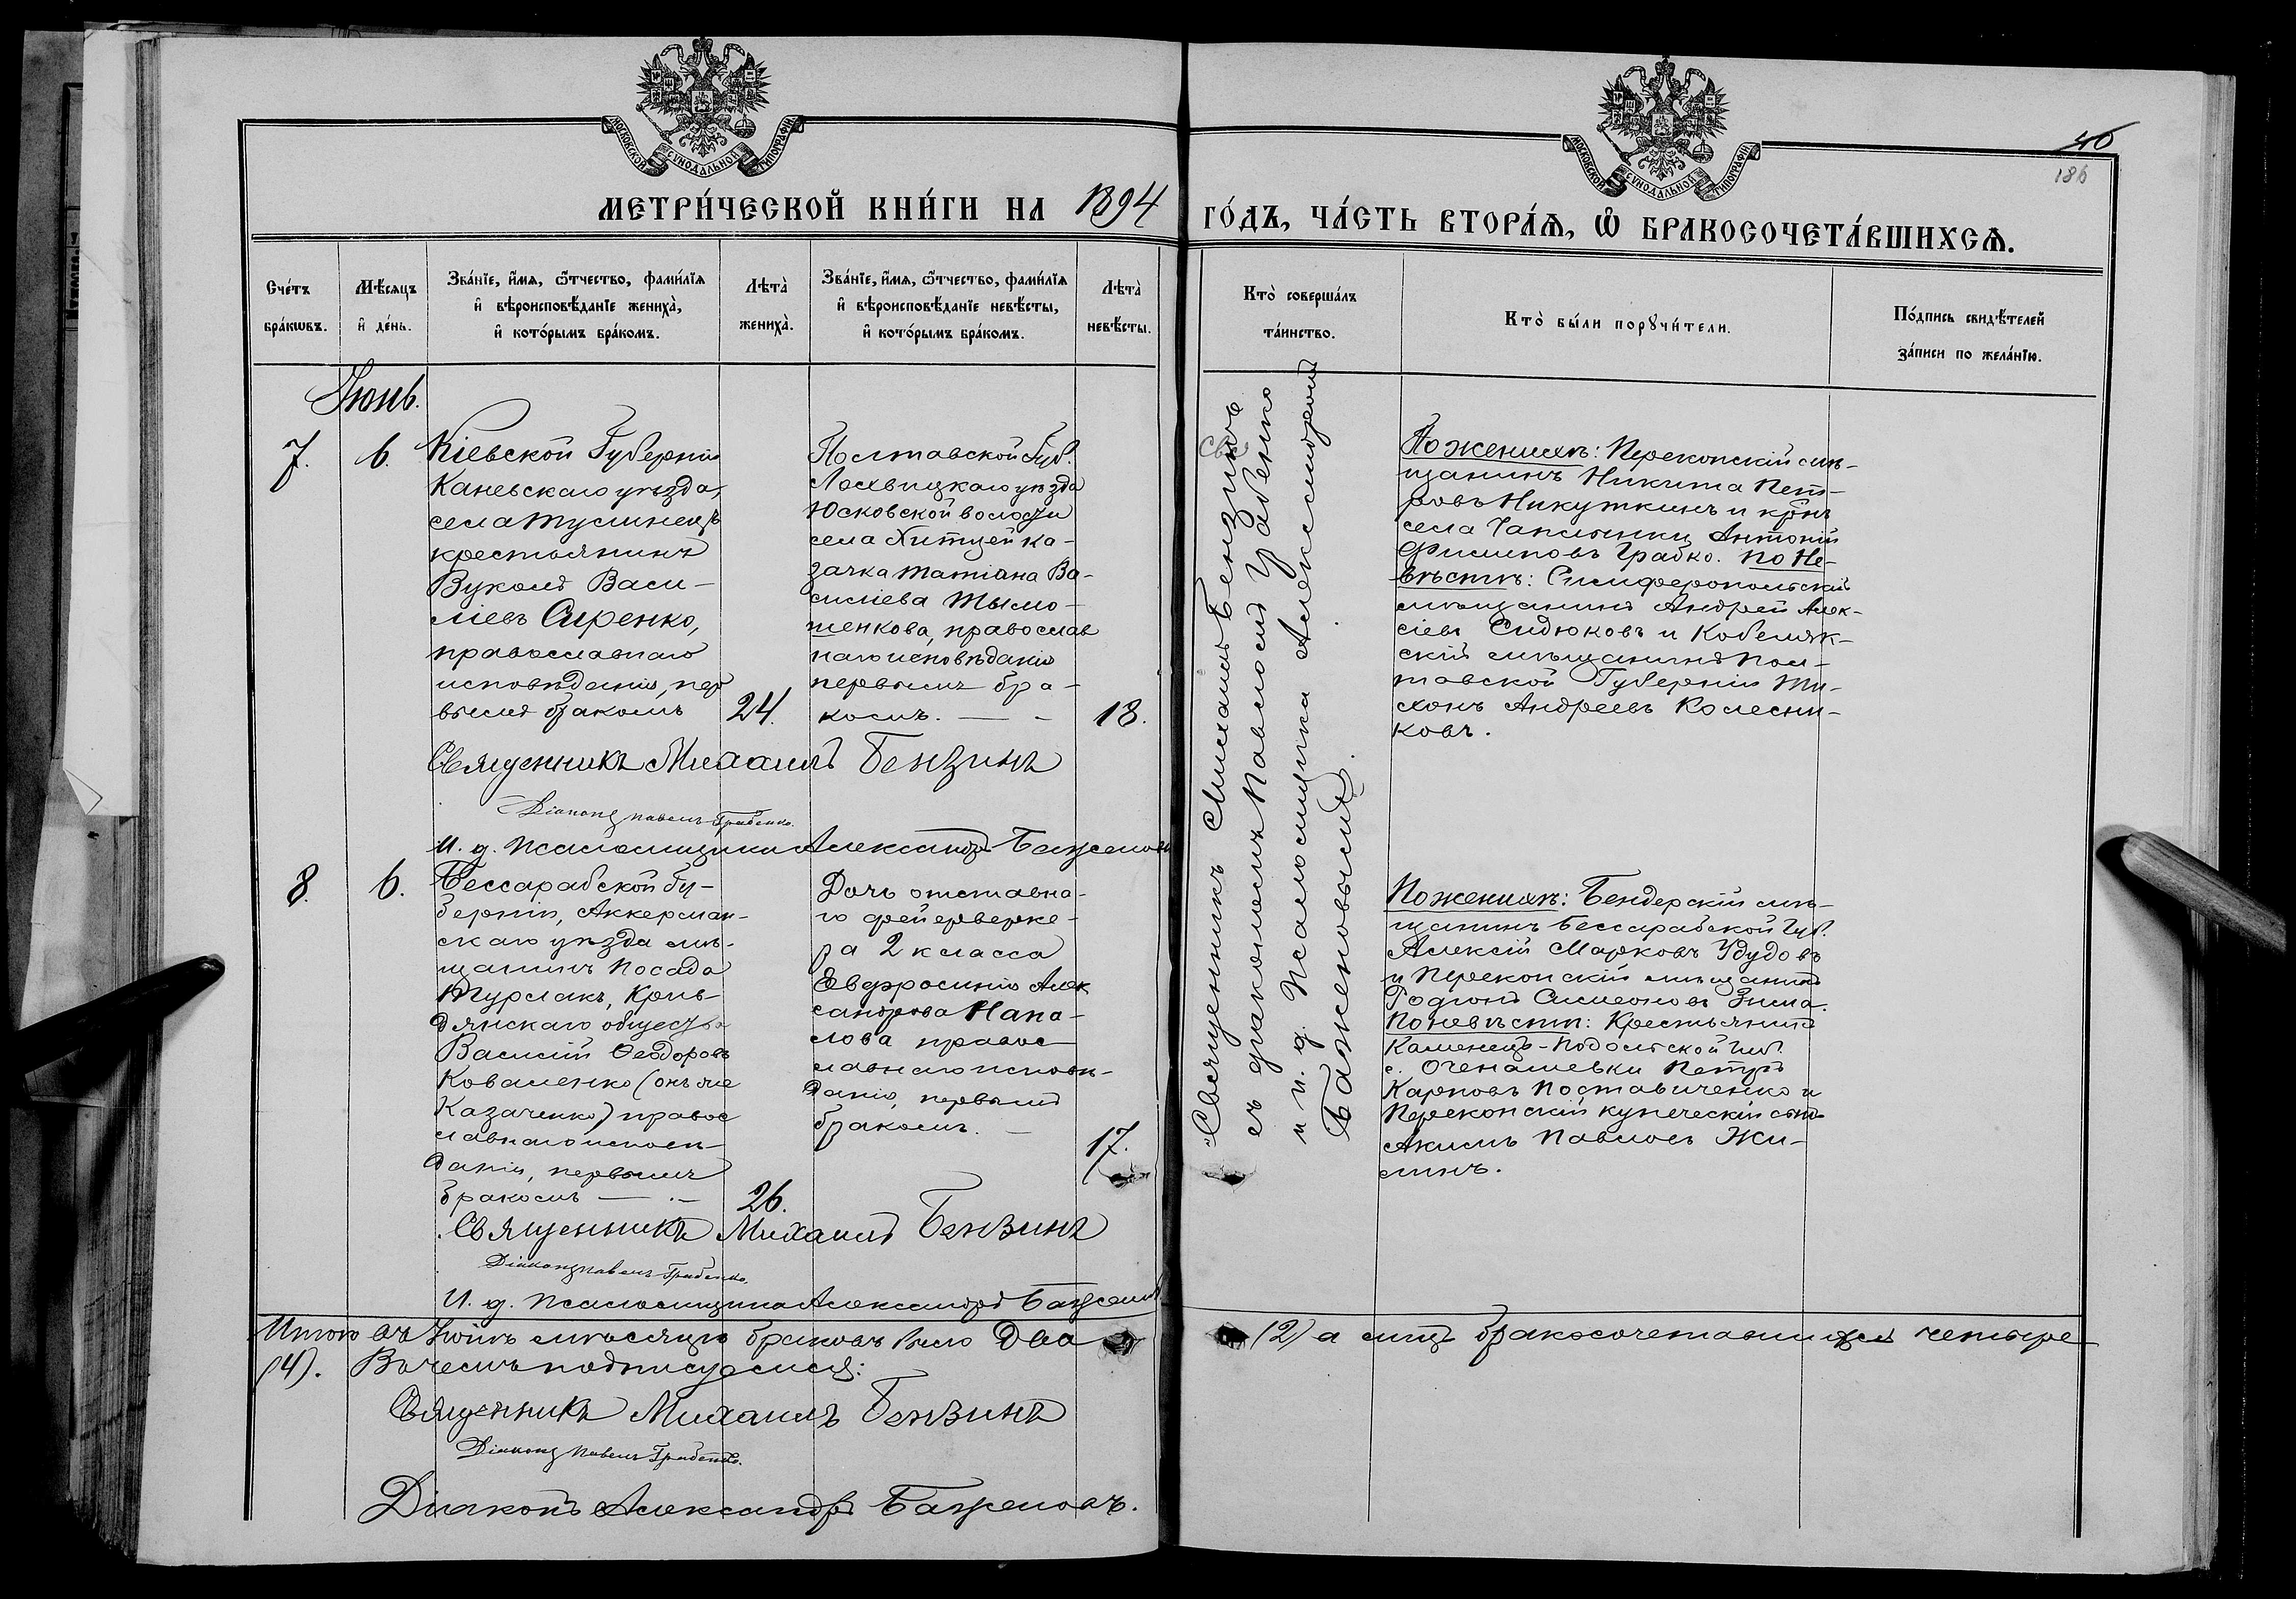 МОСКОВСКОЙ СѴНОДАЛЬНОЙ ТИПОГРАФІИ
МОСКОВСКОЙ СѴНОДАЛЬНОЙ ТИПОГРАФІИ
40
186
МЕТРИ́ЧЕСКОЙ КНИ́ГИ НА 1894 ГО́ДЪ, ЧА́СТЬ ВТОРА́Ѧ, Ѽ БРАКОСОЧЕТА́ВШИХСѦ.
Сче́тъ
бра́кѡвъ.
Мѣ́сѧцъ
и҆ де́нь.
Зва́нїе, и҆́мѧ, ѻ҆́тчество, фами́лїѧ
и҆ вѣроисповѣ́данїе жениха̀,
и҆ кото́рымъ бра́комъ.
Лѣта̀
жениха̀.
Зва́нїе, и҆́мѧ, ѻ҆́тчество, фами́лїѧ
и҆ вѣроисповѣ́данїе невѣ́сты,
и҆ кото́рымъ бра́комъ.
Лѣта̀
невѣ́сты.
Кто̀ соверша́лъ
та́инство.
Кто̀ бы́ли порꙋчи́тели.
По́дпись свидѣ́телей
за́писи по жела́нїю.
Іюнь.
7.
6.
Кіевской Губерніи
Каневскаго уѣзда,
села Тулинецъ
крестьянинъ
Вуколъ Васи-
ліевъ Сиренко,
православнаго
исповѣданія, пер
вымъ бракомъ
24.
Полтавской Губ.
Лохвицкаго уѣзда
Юсковской волости
села Хитцей ка-
зачка Татіана Ва-
силіева Тымо-
шенкова, православ
наго исповѣданія
первымъ бра-
комъ. — -
18.
Священникъ Михаилъ Бензинъ
съ діакономъ Павломъ Грабенко
и и. д. Псаломщика Александромъ
Баженовымъ.
По женихѣ: Перекопскій мѣ-
щанинъ Никита Пет-
ровъ Никуткинъ и крнъ
села Чаплынки Антоній
Филиповъ Грабко. По Не-
вѣстѣ: Симферопольскій
мѣщанинъ Андрей Алек-
сіевъ Сидюковъ и Кобеляк-
скій мѣщанинъ Пол-
тавской Губерніи Ти-
хонъ Андреевъ Колесни-
ковъ.
Священникъ Михаилъ Бензинъ
Діаконъ Павелъ Грабенко.
И. д. Псаломщика Александръ Баженовъ
8.
6.
Бессарабской Гу-
берніи, Аккерман-
скаго уѣзда мѣ-
щанинъ Посада
Турлакъ, Кри-
дянскаго общества
Василій Ѳеодоровъ
Коваленко (онъ же
Казаченко) правос
лавнаго исповѣ-
данія, первымъ
бракомъ — . —
26.
Дочь отставна-
го фейерверке-
ра 2 класса
Евфросинія Алек
сандрова Напа-
лова правос
лавнаго исповѣ-
данія, первымъ
бракомъ. —
17.
По женихѣ: Бендерскій мѣ-
щанинъ Бессарабской Губ.
Алексій Марковъ Удудовъ
и Перекопскій мѣщанинъ
Родіонъ Симеоновъ Зима.
По невѣстѣ: Крестьянинъ
Каменецъ-Подольской Губ.
с. Оченашевки Петръ
Карповъ Поставиченко и
Перекопскій купеческій сынъ
Акимъ Павловъ Жи-
линъ.
Священникъ Михаилъ Бензинъ
Діаконъ Павелъ Грабенко.
И. д. Псаломщика Александръ Баженовъ
Итого въ Іюнѣ мѣсяцѣ браковъ было два (2) а лицъ бракосочетавшихся четыре
(4). Въ чемъ подписуемся:
Священникъ Михаилъ Бензинъ
Діаконъ Павелъ Грабенко.
Діаконъ Александръ Баженовъ.